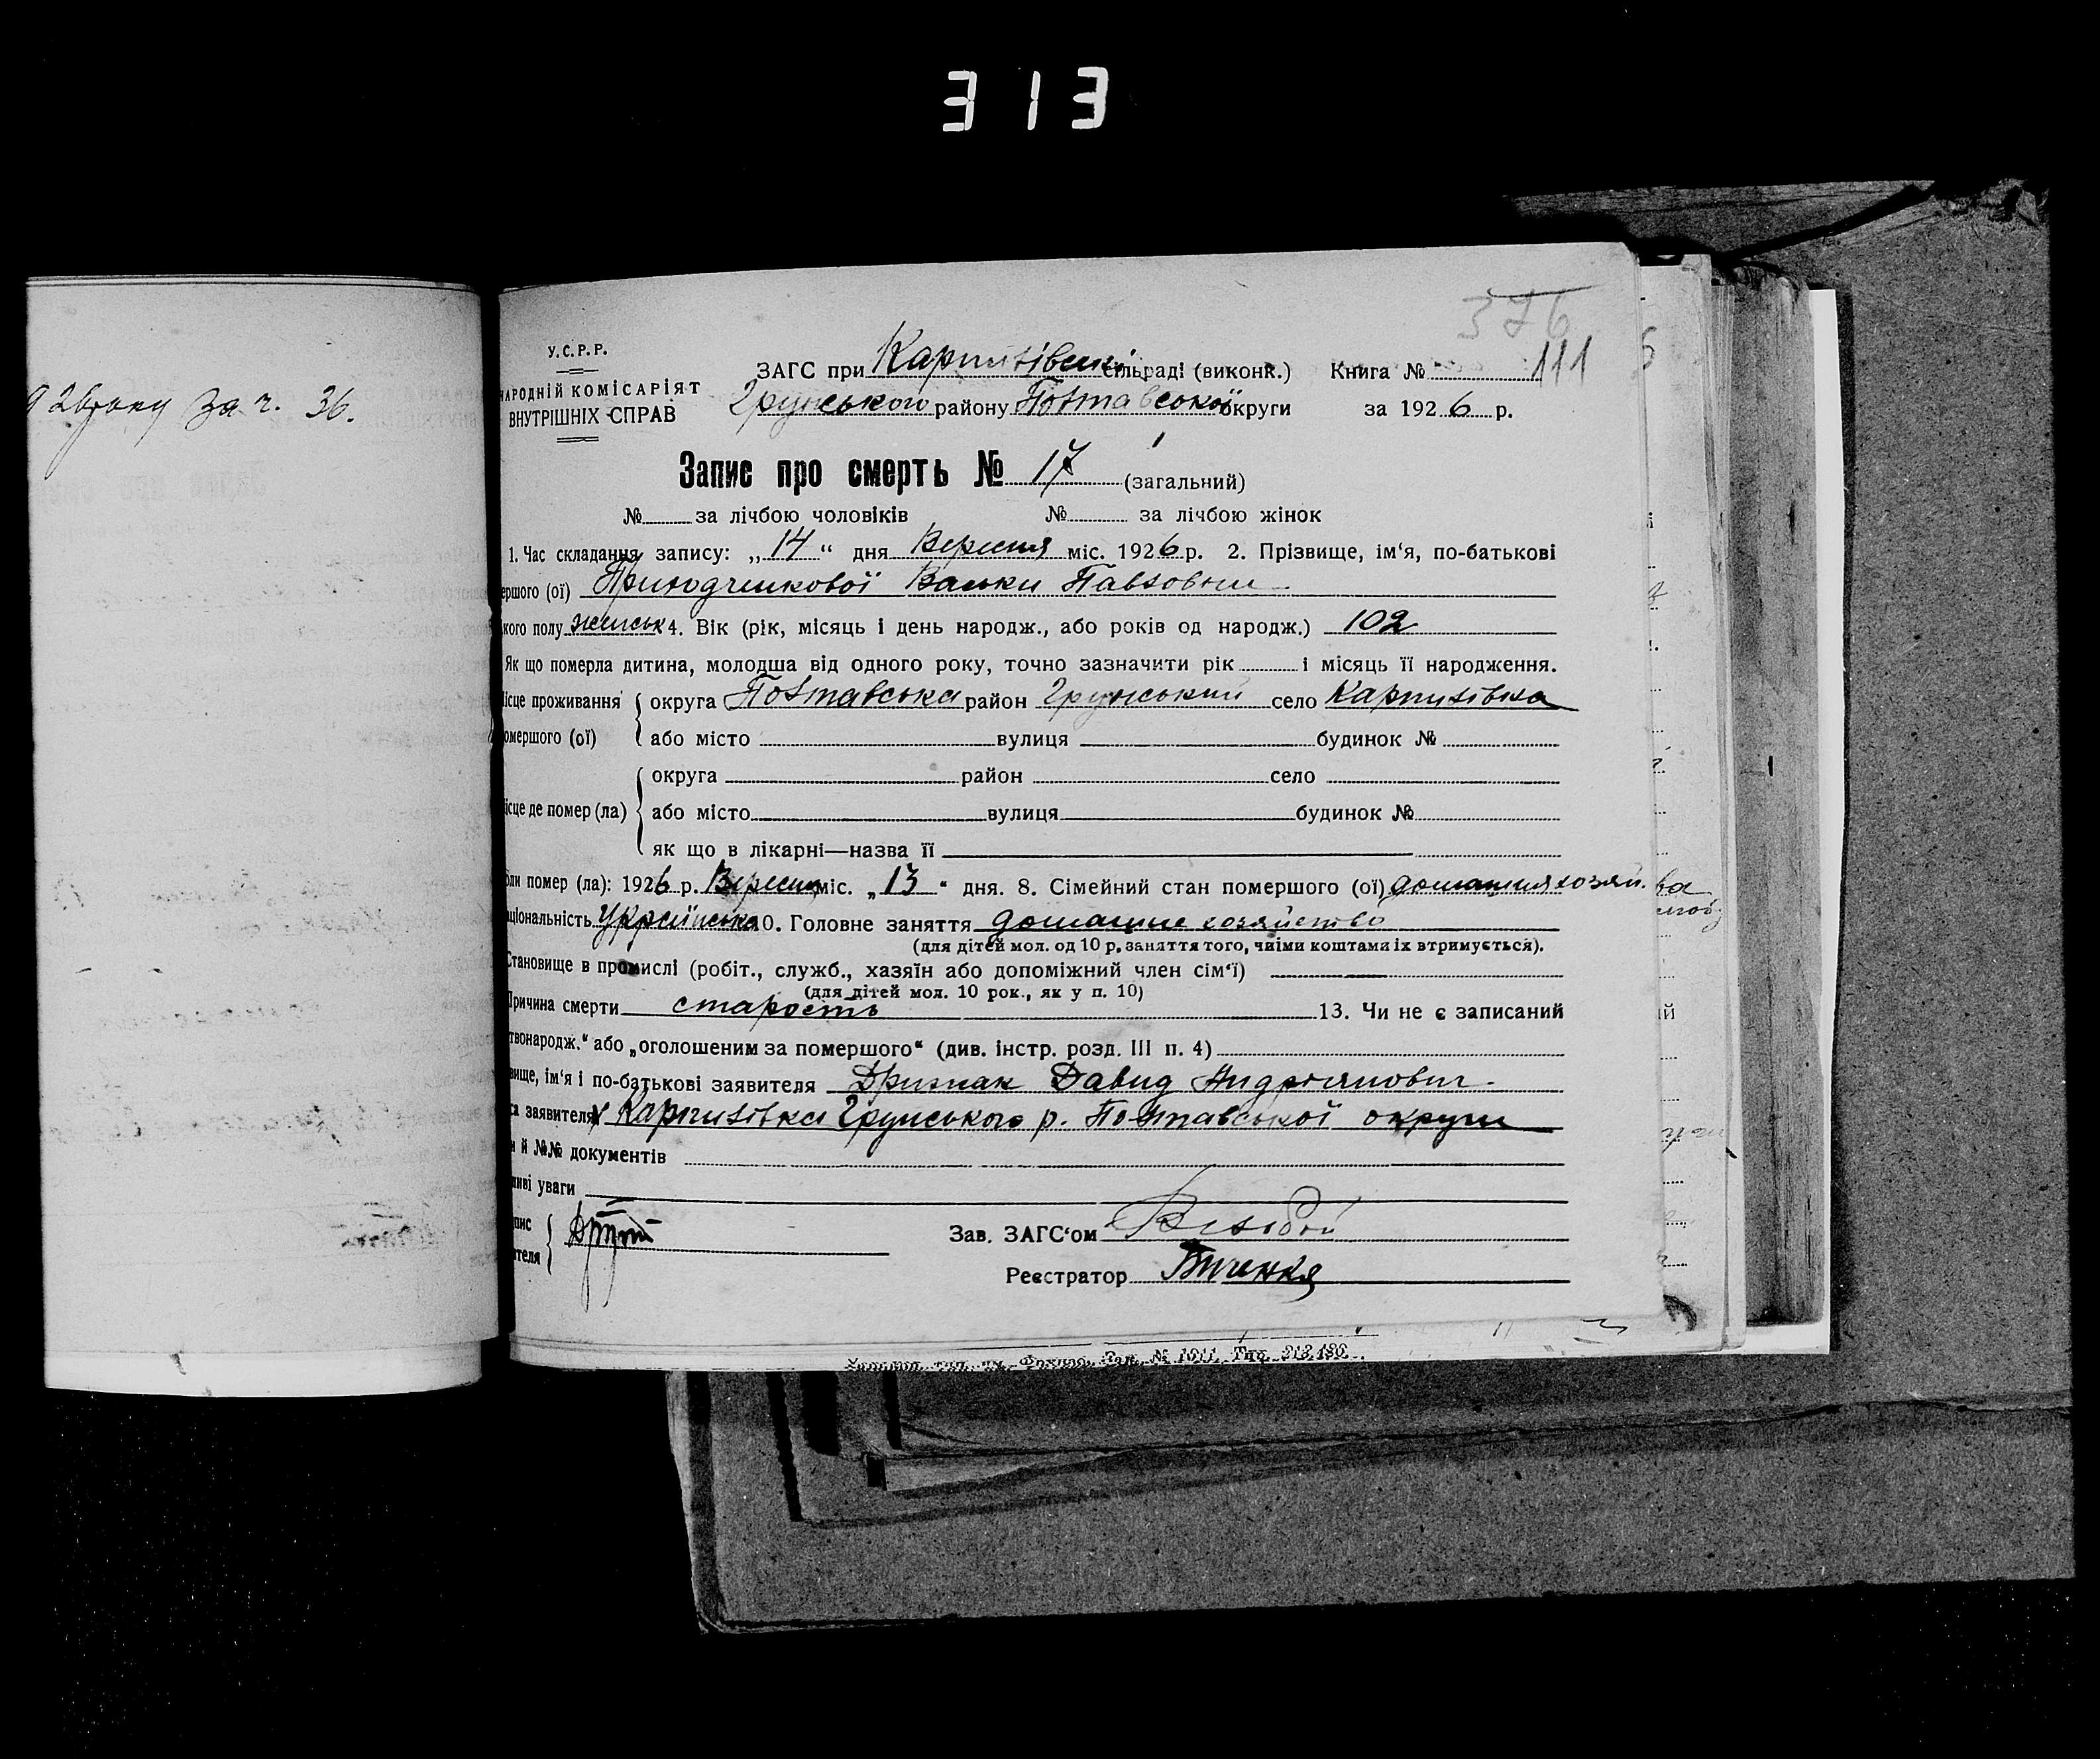 313
376
111
У.С.Р.Р.
НАРОДНІЙ КОМІСАРІЯТ
ВНУТРІШНІХ СПРАВ
926 року за ч. 36.
ЗАГС при Карпилівські сільраді (виконк.) Книга №
Грунського району Полтавської округи за 1926 р.
Запис про смерть № 17 (загальний)
№ за лічбою чоловіків № за лічбою жінок
1. Час складання запису: „14“ дня Вересня міс. 1926 р. 2. Прізвище, ім‘я, по-батькові
ершого (ої) Приходченкової Павловни
кого полу женськ 4. Вік (рік, місяць і день народж., або років од народж.) 102
Як що померла дитина, молодша від одного року, точно зазначити рік і місяць її народження.
ісце проживання округа Полтавська район Грунський село Карпилівка
омершого (ої) або місто вулиця будинок №
округа район село
ісце де помер (ла) або місто вулиця будинок №
як що в лікарні—назва її
ли помер (ла): 1926 р. Вересня міс. „13“ дня. 8. Сімейний стан помершого (ої) домашня хозяй.ва
аціональність українська 10. Головне заняття домашнє хозяйство
(для дітей мол. од 10 р. заняття того, чиїми коштами їх втримується).
Становище в промислі (робіт., служб., хазяїн або допоміжний член сім‘ї)
(для дітей мол. 10 рок., як у п. 10)
Причина смерти старость 13. Чи не є записаний
твонародж.“ або „оголошеним за помершого“ (див. інстр. розд. III п. 4)
вище, ім‘я і по-батькові заявителя Давид Андріянович
са заявителя Карпилівка Грунського р. Полтавської округи
и й №№ документів
ливі уваги
пис
ителя
Зав. ЗАГС‘ом
Реєстратор